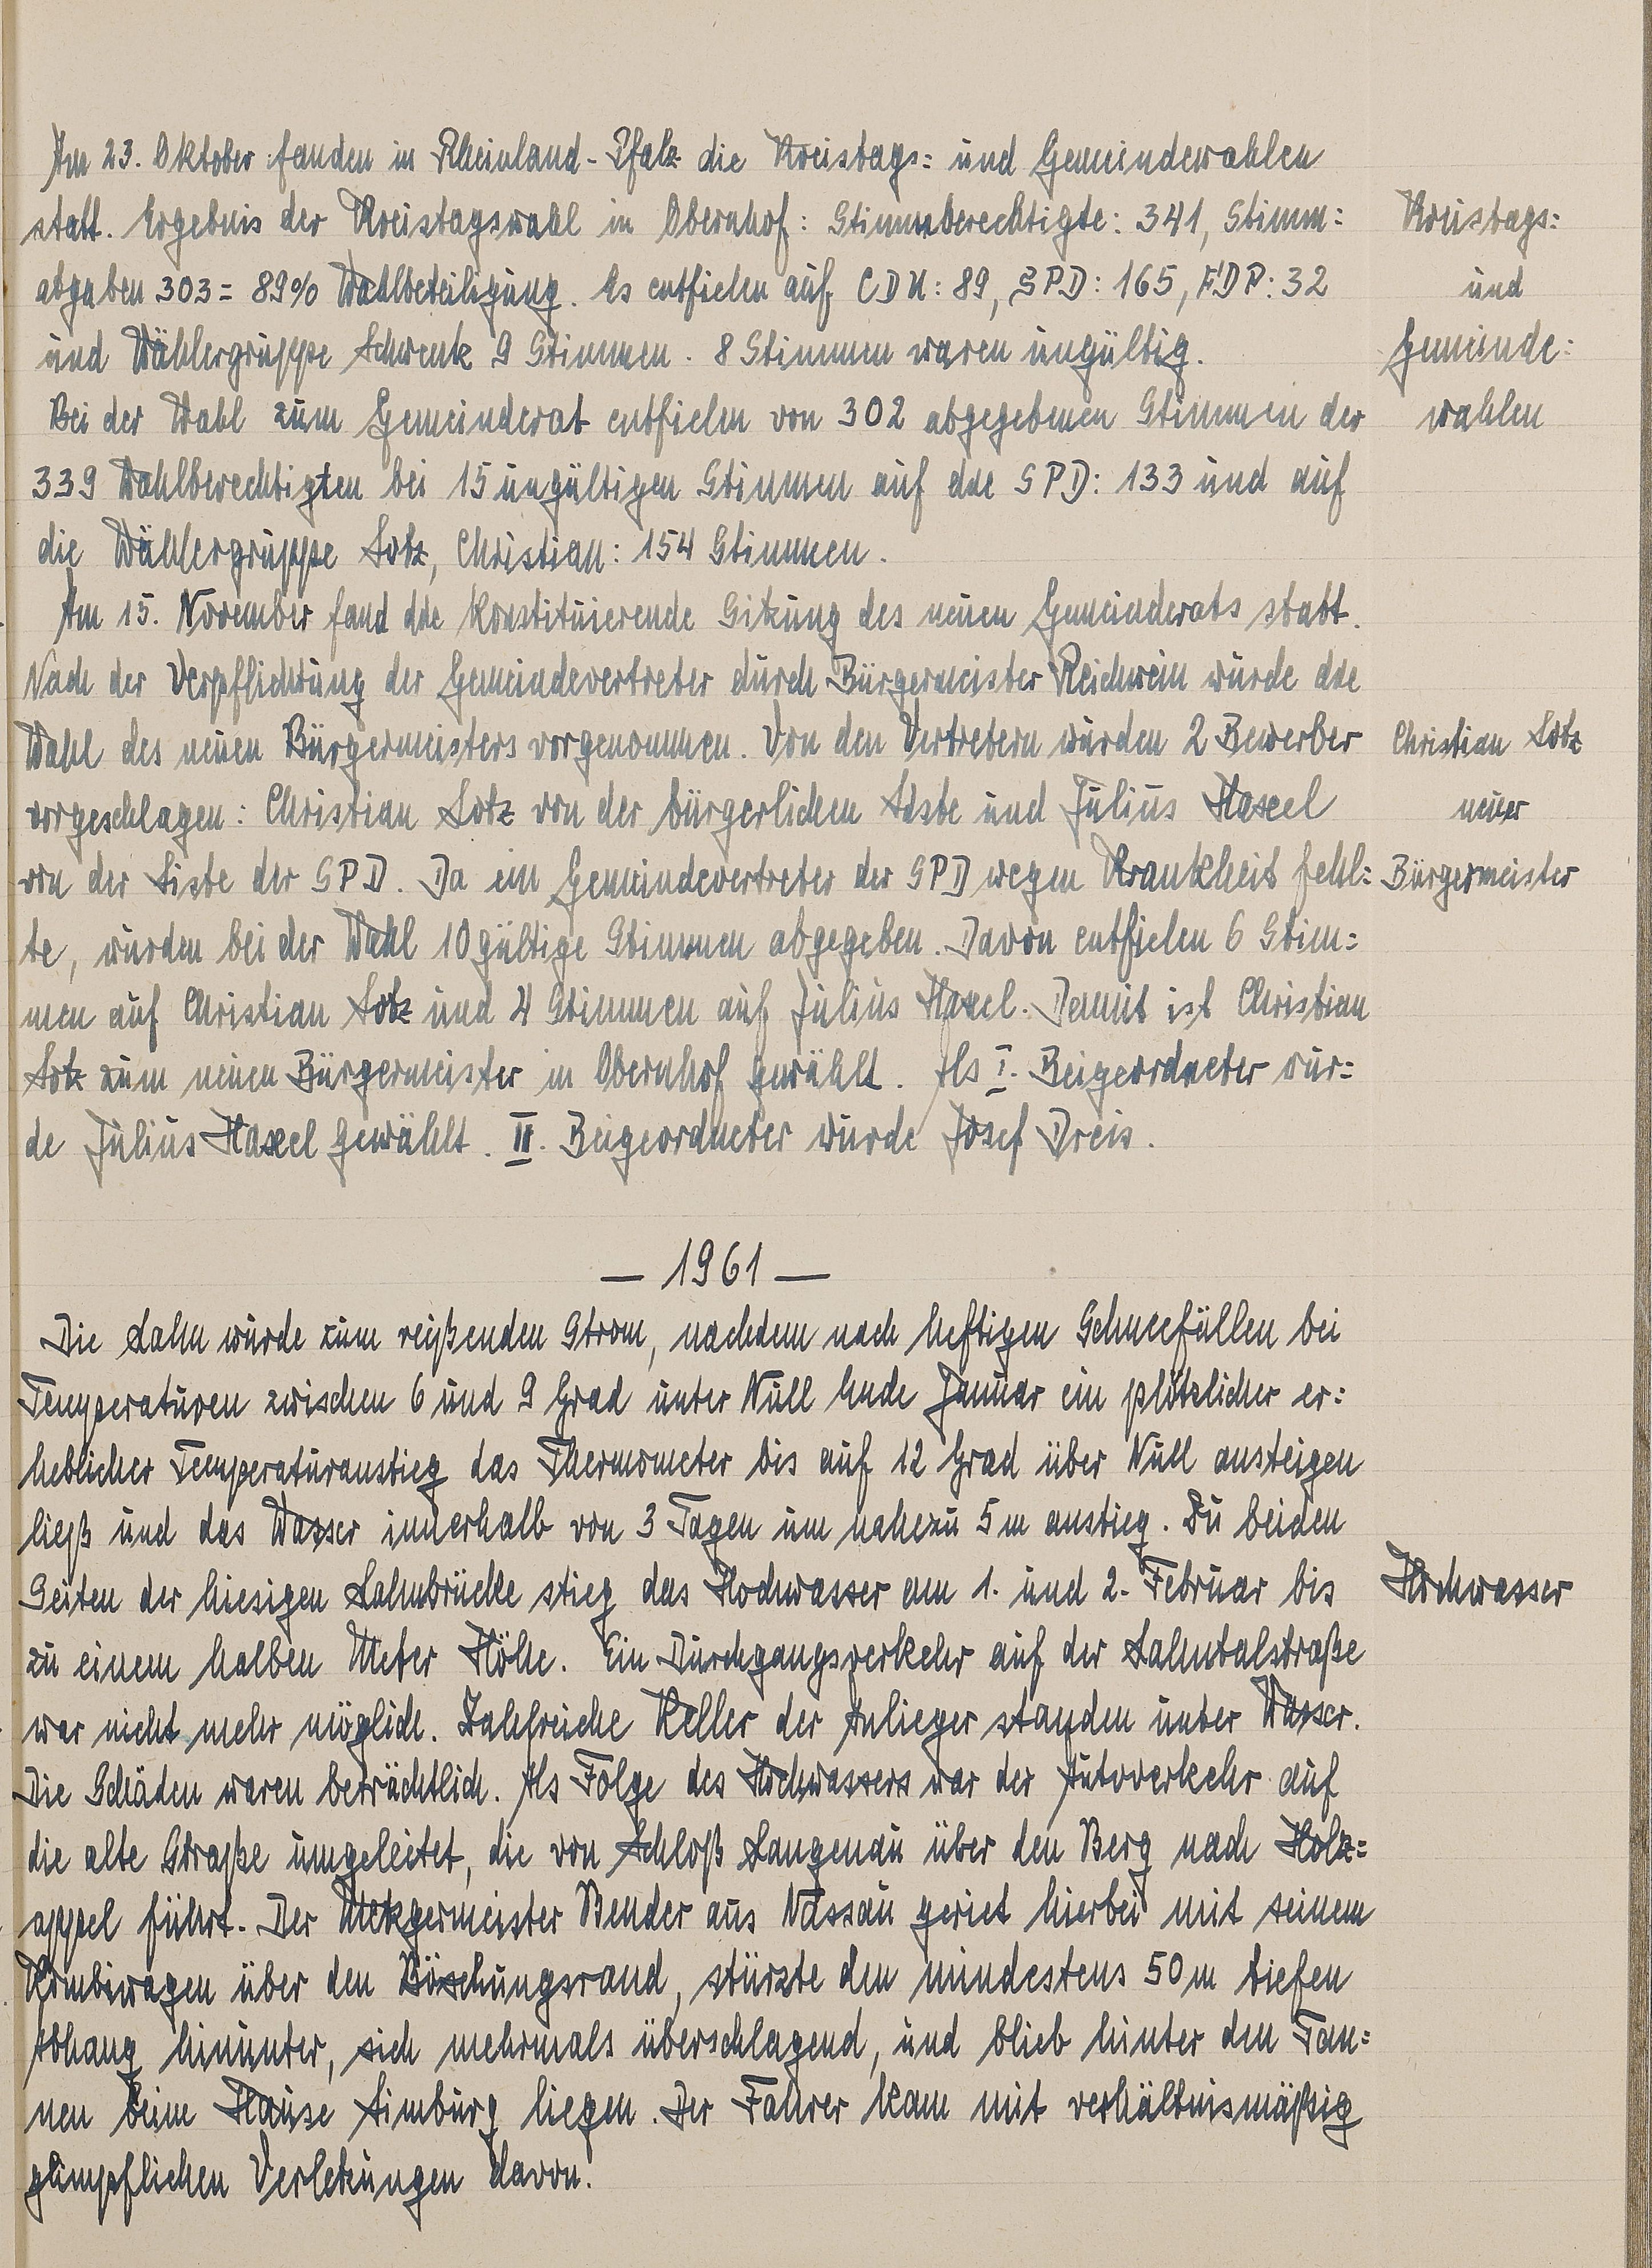 Am 23. Oktober fanden in Rheinland-Pfalz die Kreistags= und Gemeindewahlen
statt. Ergebnis der Kreistagswahl in Obernhof: Stimmberechtigte: 341, Stimm=
abgaben 303 = 89% Wahlbeteiligung. Es entfielen auf CDU: 89, SPD: 165, FDP: 32
und Wählergruppe Schwenk 9 Stimmen. 8 Stimmen waren ungültig.
Kreistags=
und
Gemeinde=
wahlen
Bei der Wahl zum Gemeinderat entfielen von 302 abgegebenen Stimmen der
339 Wahlberechtigten bei 15 ungültigen Stimmen auf die SPD: 133 und auf
die Wählergruppe Lotz, Christian: 154 Stimmen.
Am 15. November fand die konstituierende Sitzung des neuen Gemeinderats statt.
Nach der Verpflichtung der Gemeindevertreter durch Bürgermeister Reichwein wurde die
Wahl des neuen Bürgermeisters vorgenommen. Von den Vertretern wurden 2 Bewerber
vorgeschlagen: Christian Lotz von der bürgerlichen Liste und Julius Haxel
von der Liste der SPD. Da ein Gemeindevertreter der SPD wegen Krankheit fehl=
te, wurden bei der Wahl 10 gültige Stimmen abgegeben. Davon entfielen 6 Stim=
men auf Christian Lotz und 4 Stimmen auf Julius Haxel. Damit ist Christian
Lotz zum neuen Bürgermeister in Obernhof gewählt. Als I. Beigeordneter wur=
de Julius Haxel gewählt. II. Beigeordneter wurde Josef Dreis.
Christian Lotz
neuer
Bürgermeister
— 1961 —
Die Lahn wurde zum reißenden Strom, nachdem nach heftigen Schneefällen bei
Temperaturen zwischen 6 und 9 Grad unter Null Ende Januar ein plötzlicher er=
heblicher Temperaturanstieg das Thermometer bis auf 12 Grad über Null ansteigen
ließ und das Wasser innerhalb von 3 Tagen um nahezu 5 m anstieg. Zu beiden
Seiten der hiesigen Lahnbrücke stieg das Hochwasser am 1. und 2. Februar bis
zu einem halben Meter Höhe. Ein Durchgangsverkehr auf der Lahntalstraße
war nicht mehr möglich. Zahlreiche Keller der Anlieger standen unter Wasser.
Die Schäden waren beträchtlich. Als Folge des Hochwassers war der Autoverkehr auf
die alte Straße umgeleitet, die von Schloß Langenau über den Berg nach Holz=
appel führt. Der Metzgermeister Bender aus Nassau geriet hierbei mit seinem
Kombiwagen über den Böschungsrand, stürzte den mindestens 50 m tiefen
Abhang hinunter, sich mehrmals überschlagend, und blieb hinter den Tan=
nen beim Hause Limburg liegen. Der Fahrer kam mit verhältnismäßig
glimpflichen Verletzungen davon.
Hochwasser